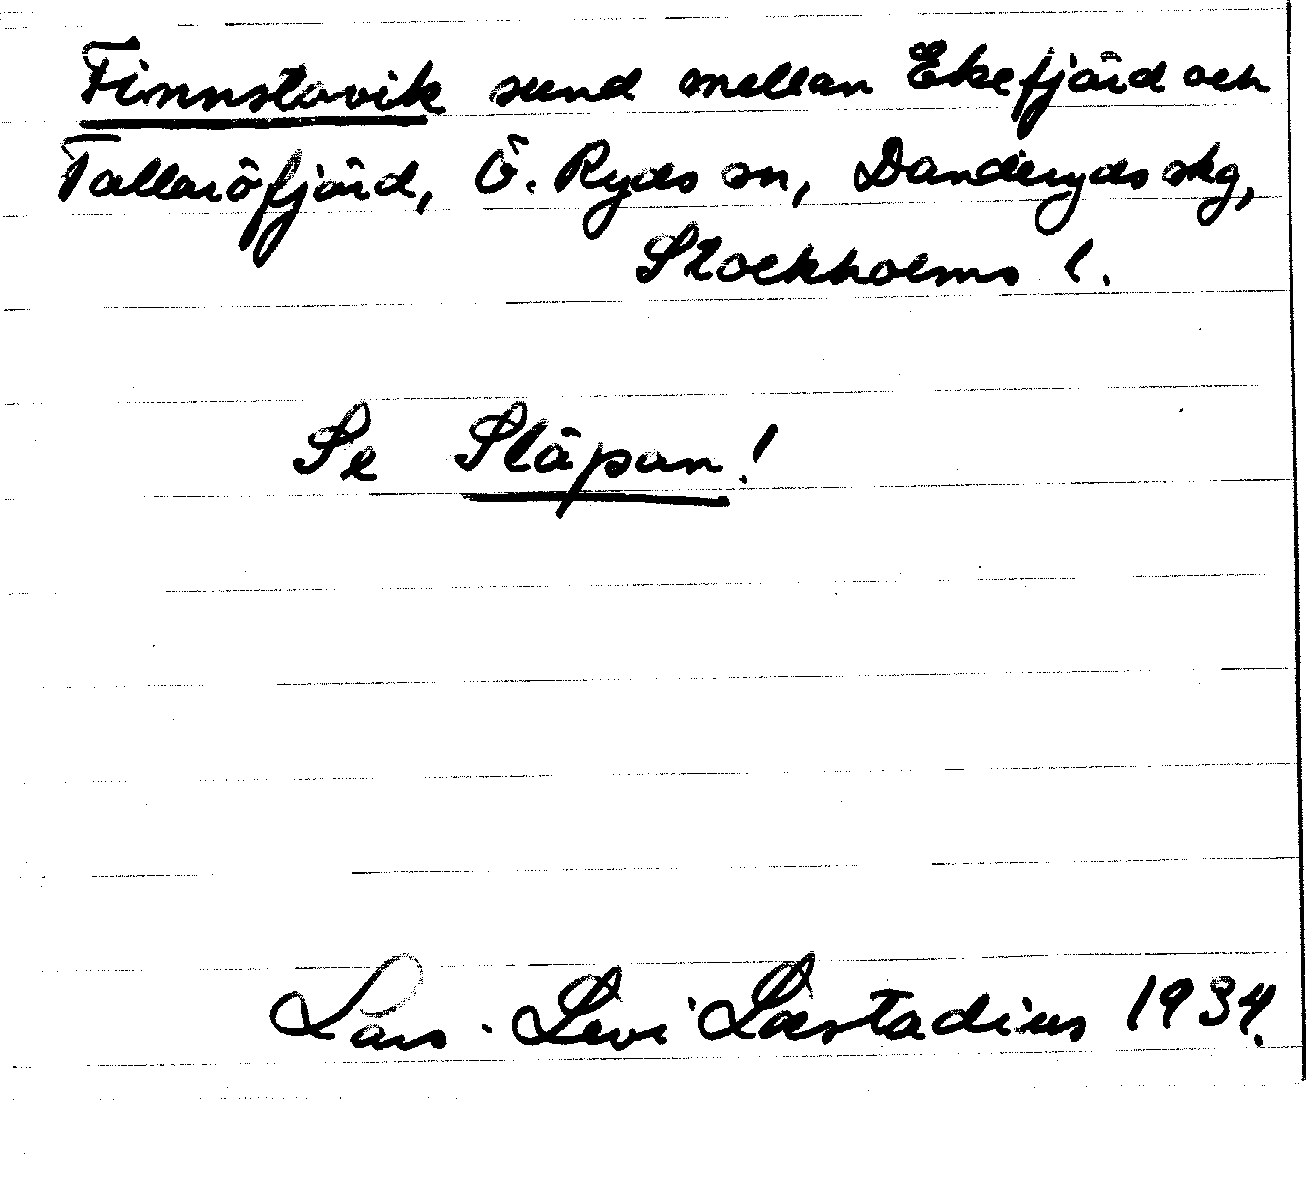 Finnstavik sund mellan Ekefjärd och
Tallaröfjärd, Ö. Ryds sn, Danderyds skg,
Stockholms l.
Se Släpan!
Lars-Levi Læstadius 1934.